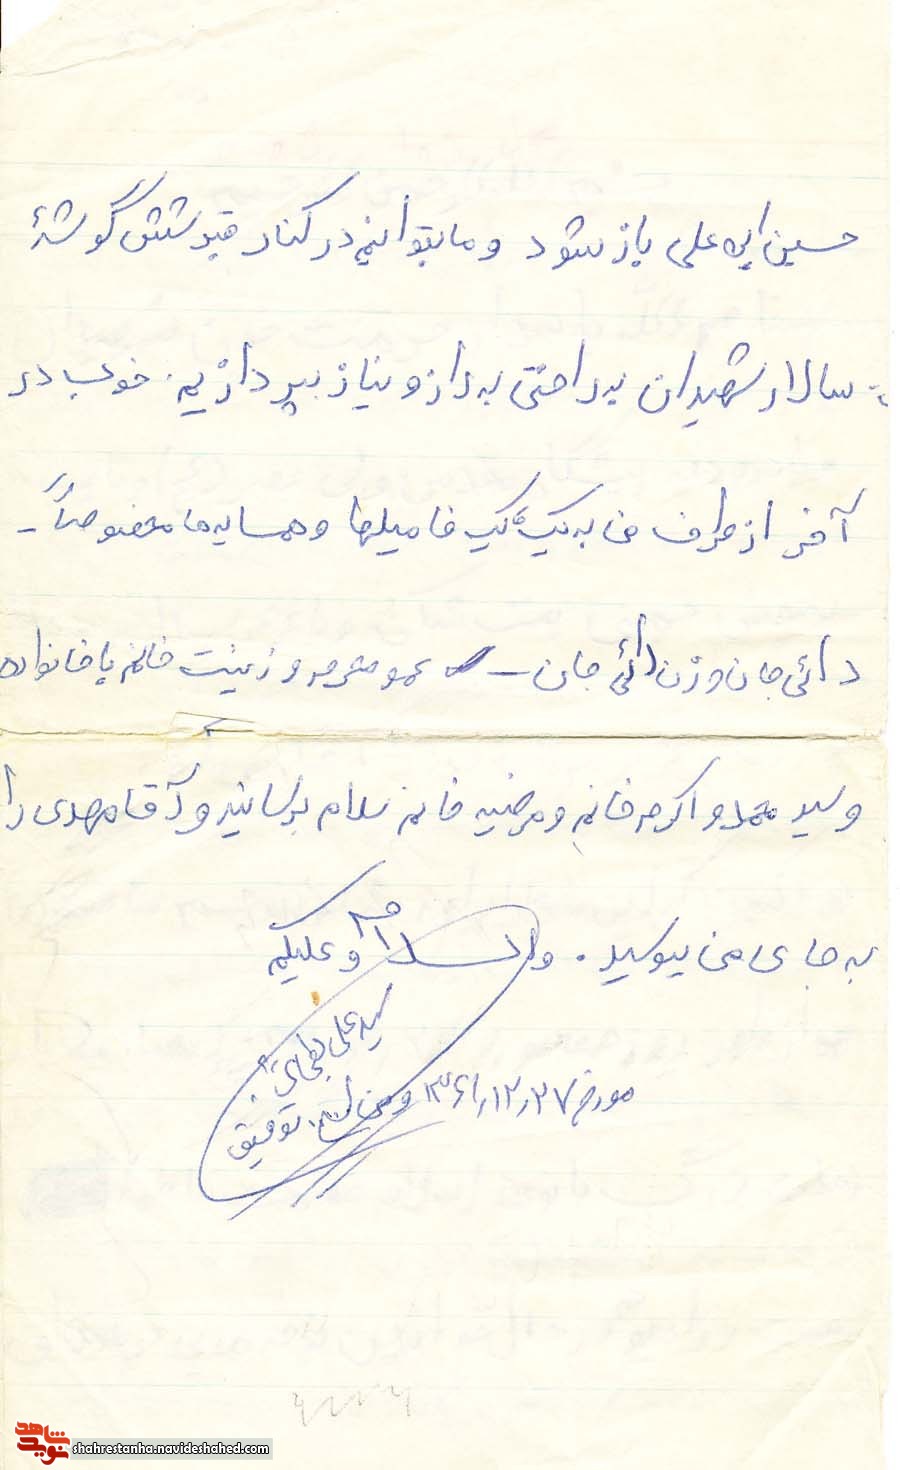 حسین ابن علی باز شود و ما بتوانیم در کنار قبر شش گوشهٔ
سالار شهیدان به راحتی به راز و نیاز بپردازیم. خوب در
آخر از طرف من به یک یک فامیلها و همسایه ها مخصوصاً -
دائی جان و زن دائی جان - عمو محرم و زینت خانم با خانواده
و سید محمد و اکرم خانم و مرضیه خانم سلام برسانید و آقا مهدی را
به جای من ببوسید. والسلام و علیکم
سید علی
مورخ ۱۳۶۱٫۱۲٫۲۷
و من الله توفیق
شاهد نوید
shahrestanha.navideshahed.com